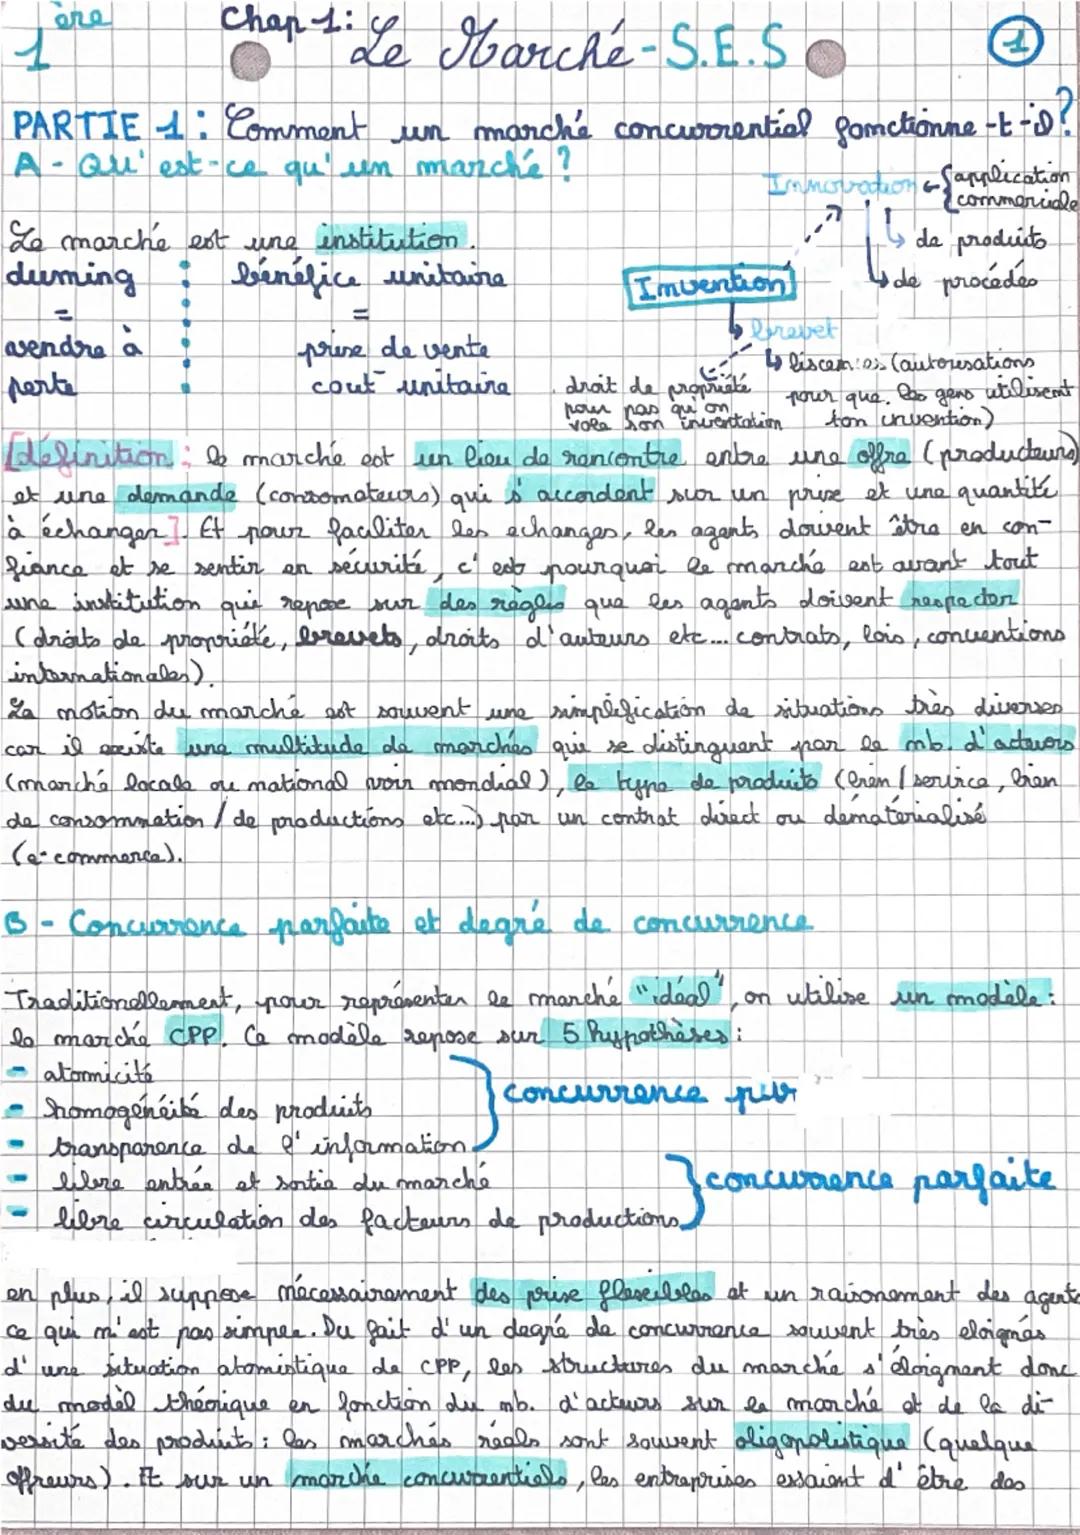 1ère
Chap 1: Le Marché - S.E.S
1
PARTIE 1 : Comment un marché concurrentiel fonctionne-t-il?
A - Qu'est-ce qu'un marché ?
Innovation ← { application commerciale
↳ de produits
↳ de procédés
Invention
↳ brevet
↳ (autorisations
pour que les gens utilisent
ton invention)
droit de propriété
pour pas qu'on
vole son inventation
Le marché est une institution.
duming
=
vendre à
perte
bénéfice unitaire
=
prix de vente
cout unitaire
[définition : le marché est un lieu de rencontre entre une offre (producteurs)
et une demande (consomateurs) qui s'accordent sur un prix et une quantité
à échanger]. Et pour faciliter les echanges, les agents doivent être en con-
fiance et se sentir en sécurité, c'est pourquoi le marché est avant tout
une institution qui repose sur des règles que les agents doivent respecter
(droits de propriété, brevets, droits d'auteurs etc... contrats, lois, conventions
internationales).
La notion du marché est souvent une simplification de situations très diverses
car il existe une multitude de marchés qui se distinguent par le nb. d'acteurs
(marché locale ou national voir mondial), le type de produits (bien / service, bien
de consommation / de productions etc...) par un contrat direct ou dématérialisé
(e-commerce).
B - Concurrence parfaite et degré de concurrence
Traditionellement, pour représenter le marché "idéal", on utilise un modèle :
le marché CPP. Ce modèle repose sur 5 hypothèses :
- atomicité
- homogénéité des produits
- transparence de l'information
} concurrence
- libre entrée et sortie du marché
- libre circulation des facteurs de productions
} concurrence parfaite
en plus, il suppose nécessairement des prix flexibles et un raisonement des agents
ce qui n'est pas simple. Du fait d'un degré de concurrence souvent très eloignés
d'une situation atomistique de CPP, les structures du marché s'éloignant donc
du modèl théorique en fonction du nb. d'acteurs sur le marché et de la di-
versité des produits : les marchés réels sont souvent oligopolistique (quelque
offreurs). Et sur un marché concurrentiels, les entreprises essaient d'être des